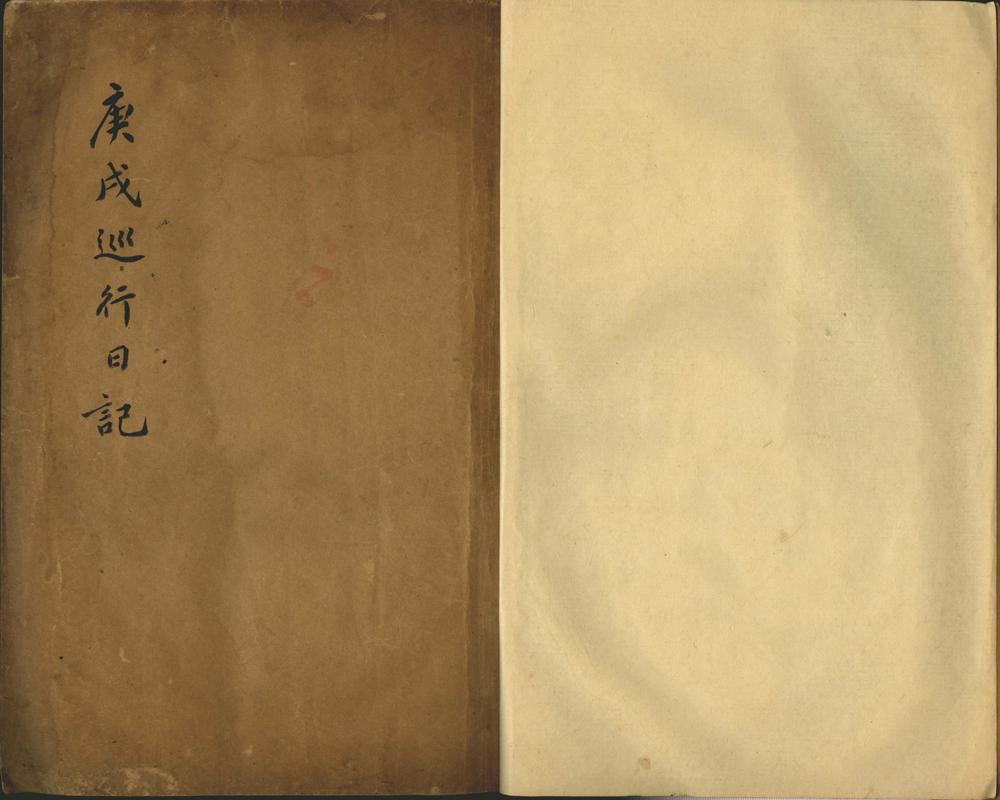 庚戌巡行日記